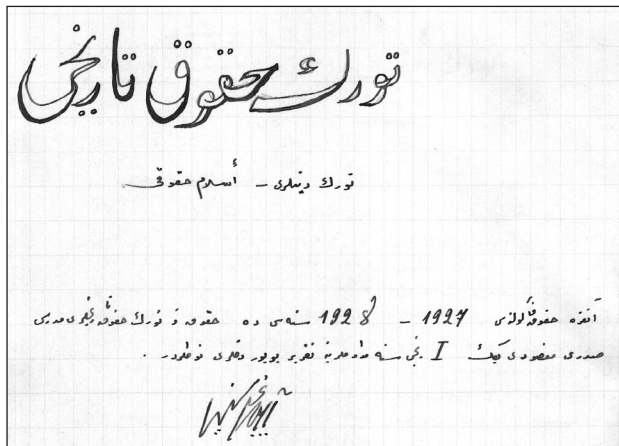 تورك حقوق تاريخى
تورك دينلرى – أسلام حقوقى
آنقره حقوق فاكولته‌سى 1927 – 1928 سنه‌سى ده حقوق و تورك حقوق تاريخى مدرسى
صدرى مقصودى بيك I نجى سنه تقرير بويور دقلرى نوطلردر .